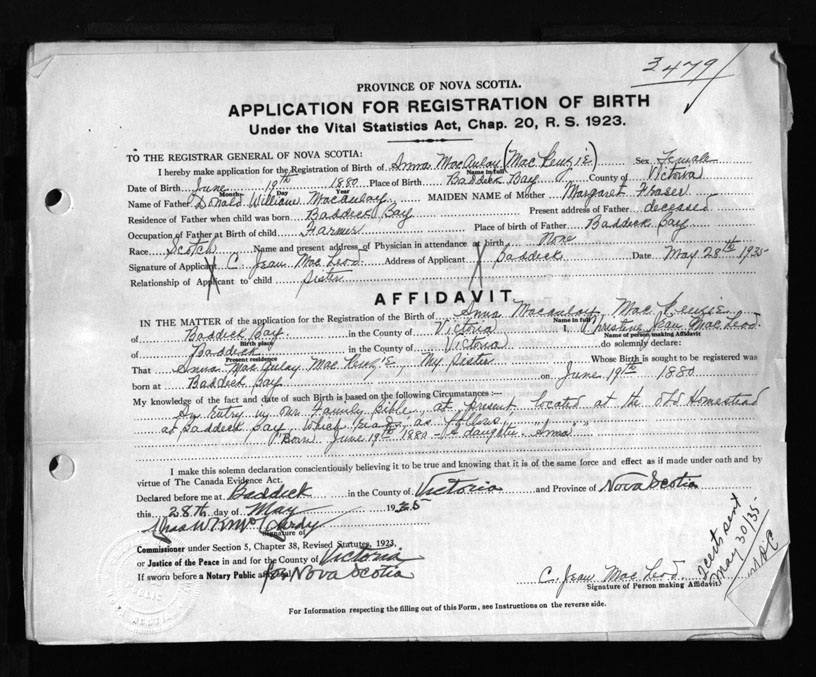 3479
PROVINCE OF NOVA SCOTIA.
APPLICATION FOR REGISTRATION OF BIRTH
Under the Vital Statistics Act, Chap. 20, R. S. 1923.
TO THE REGISTRAR GENERAL OF NOVA SCOTIA:
I hereby make application for the Registration of Birth of Anna MacAulay (MacKenzie) Sex Female
Name in full
Date of Birth June 19th 1880 Place of Birth Baddeck Bay County of Victoria
Month Day Year
Name of Father Donald William Macaulay MAIDEN NAME of Mother Margaret Fraser
Residence of Father when child was born Baddeck Bay Present address of Father decesed
Occupation of Father at Birth of child Farmer Place of birth of Father Baddeck Bay
Race Scotch Name and present address of Physician in attendance at birth None
Signature of Applicant C. Jean MacLeod Address of Applicant Baddeck Date May 28th 1935
Relationship of Applicant to child Sister
AFFIDAVIT
IN THE MATTER of the application for the Registration of the Birth of Anna Macaulay, MacKenzie
Name in full
of Baddeck Bay in the County of Victoria I, Christine Jean MacLeod
Birth place Name of person making Affidavit
of Baddeck in the County of Victoria do solemnly declare:
Present residence
That Anna MacAulay MacKenzie, My Sister Whose Birth is sought to be registered was
born at Baddeck Bay on June 19th 1880
My knowledge of the fact and date of such Birth is based on the following Circumstances:—
An Entry in our Family Bible, at present located at the old Homestead
at Baddeck Bay, which reads as follows
"Born June 19th 1880 - a daughter Anna"
I make this solemn declaration conscientiously believing it to be true and knowing that it is of the same force and effect as if made under oath and by
virtue of The Canada Evidence Act.
Declared before me at Baddeck in the County of Victoria and Province of Nova Scotia
this 28th day of May 1935
Signature of
Commissioner under Section 5, Chapter 38, Revised Statutes, 1923,
or Justice of the Peace in and for the County of Victoria
If sworn before a Notary Public Nova Scotia
C. Jean MacLeod
Signature of Person making Affidavit
sent
May 30/35
For Information respecting the filling out of this Form, see Instructions on the reverse side.